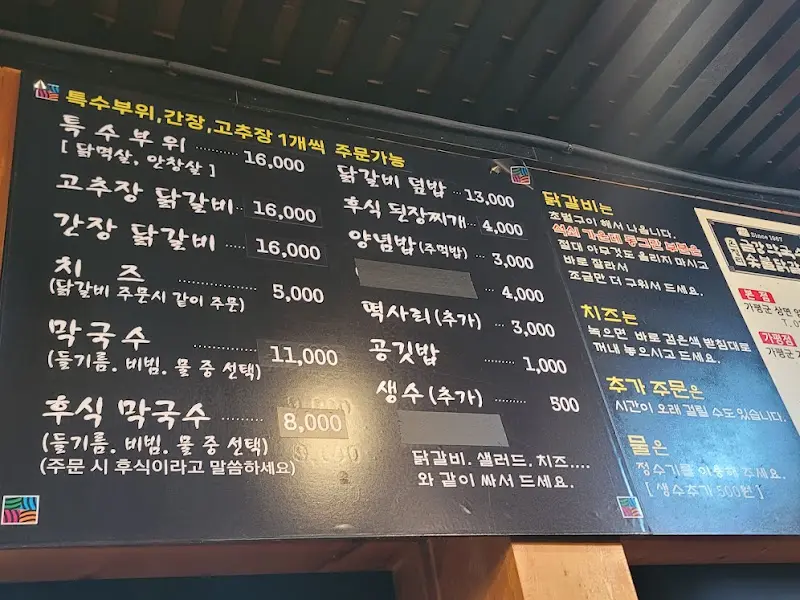 특수부위,간장,고추장 1개씩 주문가능
특수부위 ........ 16,000
[ 닭목살, 안창살 ]
고추장 닭갈비 16,000
간장 닭갈비 ...... 16,000
치 즈 ........ 5,000
(닭갈비 주문시 같이 주문)
막국수 ........ 11,000
(들기름. 비빔. 물 중 선택)
후식 막국수 ........ 8,000
(들기름. 비빔. 물 중 선택)
(주문 시 후식이라고 말씀하세요)
닭갈비 덮밥 ... 13,000
후식 된장찌개 ... 4,000
양념밥(주먹밥) ... 3,000
... 4,000
떡사리(추가) ... 3,000
공깃밥 ........ 1,000
생수(추가) ........ 500
닭갈비. 샐러드. 치즈....
와 같이 싸서 드세요.
닭갈비는
초벌구이 해서 나옵니다.
석쇠 가운데 동그란 부분은
절대 아무것도 올리지 마시고
바로 잘라서
조금만 더 구워서 드세요.
치즈는
녹으면 바로 검은색 받침대로
꺼내 놓으시고 드세요.
추가 주문은
시간이 오래 걸릴 수도 있습니다.
물은
정수기를 이용해 주세요.
[ 생수추가 500원 ]
Since 1967
금강막국수
숯불닭갈
본 점
가평군 상면
가평점
가평군